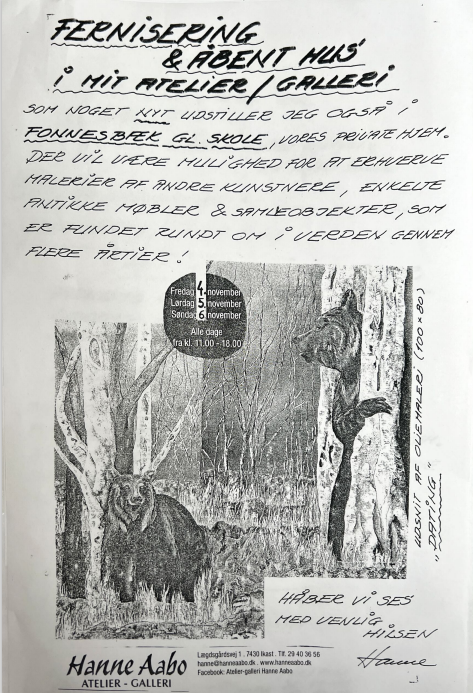 FERNISERING
& ÅBENT HUS
i MIT ATELIER/GALLERI
SOM NOGET NYT UDSTILLER JEG OGSÅ i
FONNESBÆK GL. SKOLE, VORES PRIVATE HJEM.
DER VIL VÆRE MULIGHED FOR AT ERHVERVE
MALERIER AF ANDRE KUNSTNERE, ENKELTE
ANTIKKE MØBLER & SAMLEOBJEKTER, SOM
ER FUNDET RUNDT OM i VERDEN GENNEM
FLERE ÅRTIER!
Fredag 4. november
Lørdag 5. november
Søndag 6. november
Alle dage
fra kl. 11.00 - 18.00
UDSNIT AF OLIEMALERI (100 x 80)
"DATING"
HÅBER VI SES
MED VENLIG
HILSEN
Hanne
Hanne Aabo
ATELIER - GALLERI
Lægdsgårdsvej 1 . 7430 Ikast . Tlf. 29 40 36 56
hanne@hanneaabo.dk . www.hanneaabo.dk
Facebook: Atelier-galleri Hanne Aabo